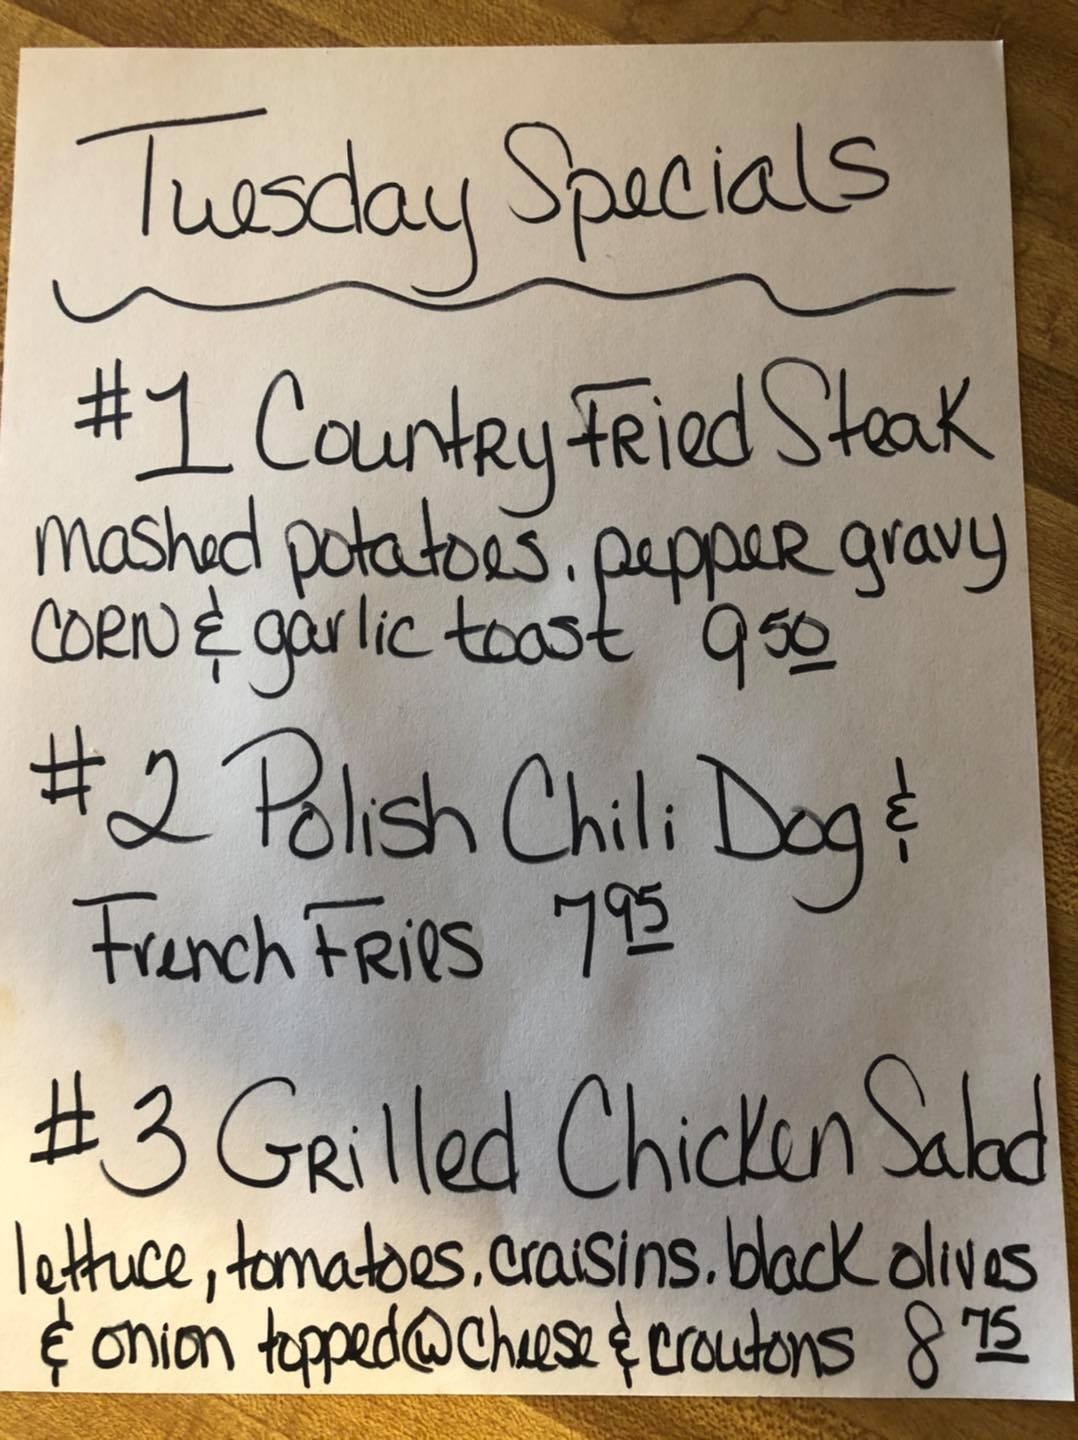 Tuesday Specials
#1 Country Fried Steak
mashed potatoes, pepper gravy
corn & garlic toast 9 50
#2 Polish Chili Dog &
French Fries 7 95
#3 Grilled Chicken Salad
lettuce, tomatoes, craisins, black olives
& onion topped w cheese & croutons 8 75